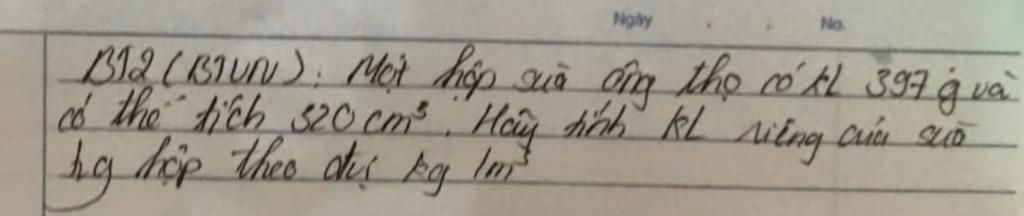 Ngày . . No.
BT2 (BTVN): Một hộp sữa ông thọ có kL 397 g và
có thể tích 320 cm³. Hãy tính kL riêng của sữa
hg hộp theo đvị kg /m³